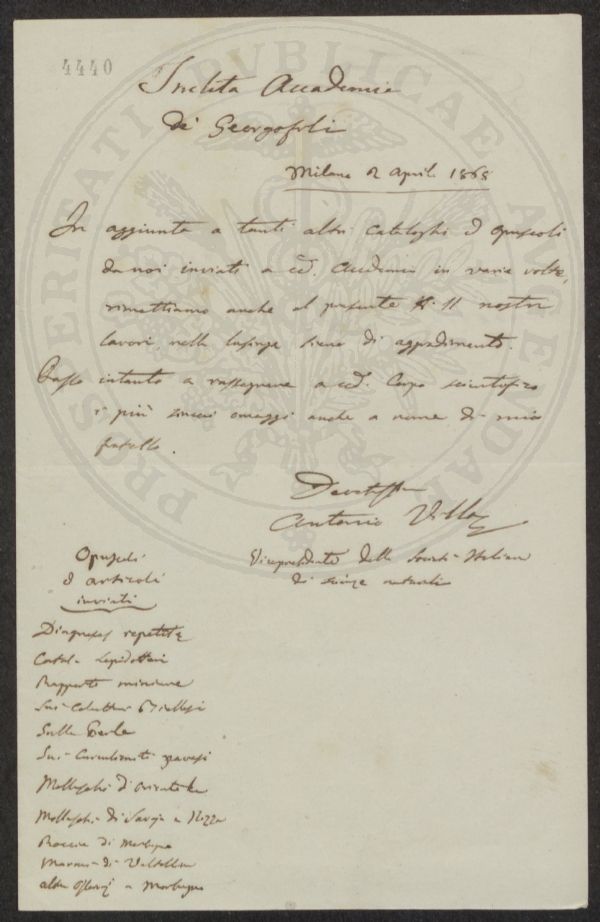 4440
PROSPERITATI PVBLICAE AVGENDAE
Inclita Accademia
de' Georgofoli
Milano 2 Aprile 1868
In aggiunta a tanti altri cataloghi ed opuscoli
da noi inviati a cod. Accademia in varie volte,
rimettiamo anche al presente 11 nostri
lavori, nella lusinga siano di aggradimento.
Passo intanto a rassegnare a cod. Corpo scientifico
i più sinceri omaggi anche a nome di mio
fratello.
Devotiss
Antonio Villa
Vicepresidente della Società Italiana
di scienze naturali
Opuscoli
ed articoli
inviati
Diagnoses repetitae
Catal. Lepidotteri
Rapporto miniere
Sui Coleotteri Biellesi
Sulle Perle
Sui Curculioniti pavesi
Molluschi d'
Molluschi di Savoja e Nizza
Roccie di Morbegno
Marmi di Valtellina
altre a Morbegno